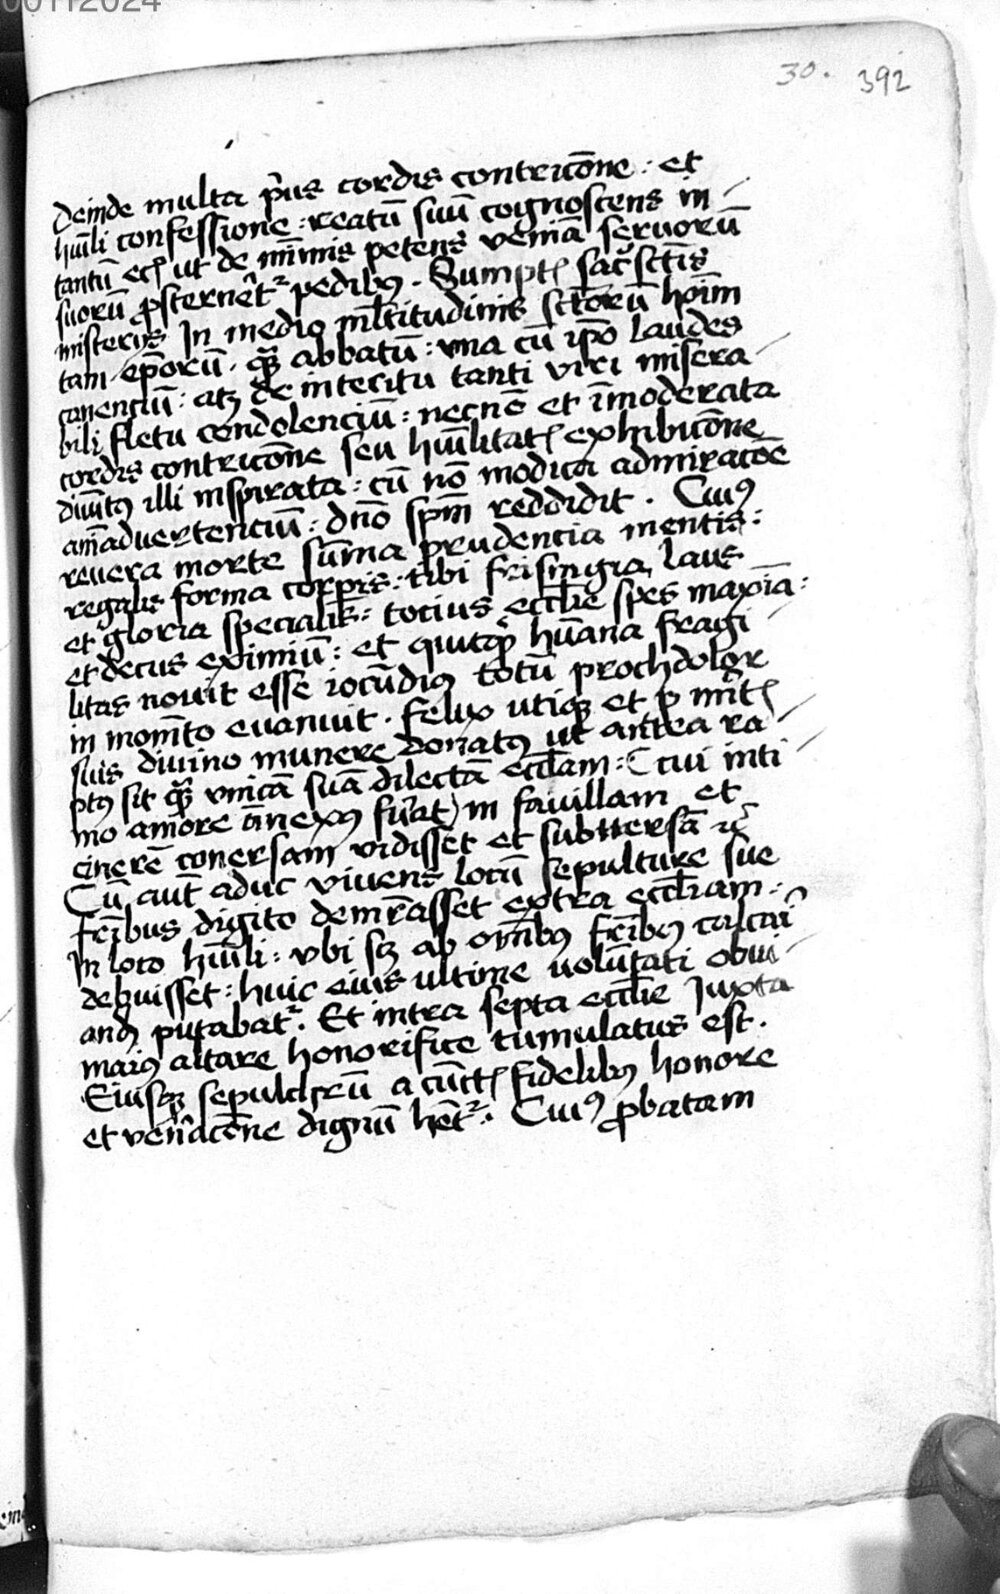 00112024
30. 392
Deinde multa p̄us cordis contricōne : et
hūīli confessione : reatū suū cognoscens in
tantū ecꝭ ut de mīmis petens veniā seruorū
suorū ꝓsternēt᷑ pedibꝰ . Sumptꝭ sac̄sctīs
misterijs In medio mltitudinis sctōrū hoīm
tam ep̄orū . qͣꝫ abbatū : vna cū ip̄o laudes
canenciū : atqꝫ de interitu tanti viri misera
bili fletu condolenciū : necnō et īmoderata
cordis contricōne seu hūīlitatꝭ exhibicōne
diuītꝰ illi inspirata : cū nō modica admiracōe
aīaduertenciū : dn̄o sp̄m reddidit . Cuiꝰ
reuera morte sūma prudencia mentis :
regalis forma corpīs : tibi frisingia laus
et gloria specialis : tocius eccl̄ie spes maxīa :
et decus eximiū : et quicqͥd hūana fragi
litas nouit esse iocūdiꝰ totū prochdolor
in momēto euanuit . Felix utiqꝫ et p̄ mītꝭ
suis diuino munere donatꝰ ut antea ra
ptꝰ sit qͣꝫ vnicā suā dilectā eccl̄iam : ( cui inti
mo amore ānexꝰ fūat ) in fauillam et
cinerē conersam vidisset et subuersā
Cū aut̄ aduc viuens locū sepulture sue
fr̄ībus digito demrāsset extra eccl̄iam :
In loco hūīli : vbi sꝫ ab omībꝰ fr̄ībꝰ calcari
debuisset : huic eius ultime volūtati obui
andꝰ putabat᷑ . Et intra septa eccl̄ie Juxta
maiꝰ altare honorifice tumulatus est .
Eiusqꝫ sepulchrū a cūctꝭ fidelibꝰ honore
et venīacōne dignū hēt᷑ : Cuiꝰ ꝓbatam